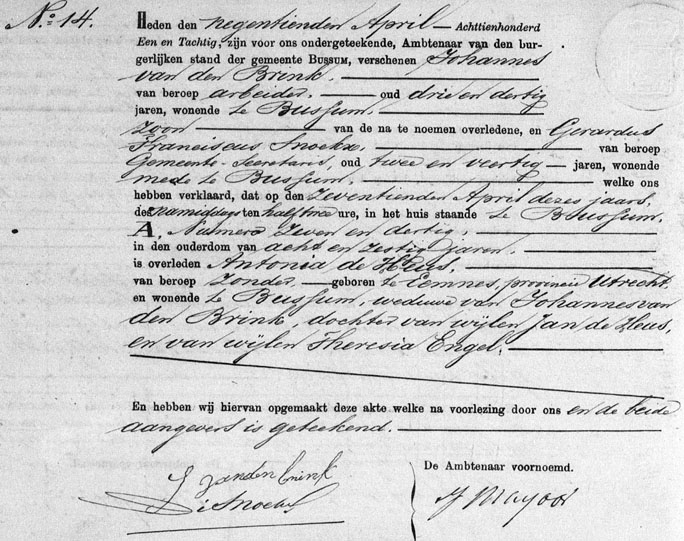 No. 14.
Heden den negentienden April — Achttienhonderd
Een en Tachtig, zijn voor ons ondergeteekende, Ambtenaar van den bur-
gerlijken stand der gemeente BUSSUM, verschenen Johannes
van den Brink.
van beroep arbeider. — oud drie en dertig
jaren, wonende te Bussum.
zoon — van de na te noemen overledene, en Gerardus
Franciscus Snoekx. — van beroep
Gemeente-Secretaris, oud twee en veertig — jaren, wonende
mede te Bussum. — welke ons
hebben verklaard, dat op den zeventienden April dezes jaars,
des namiddags ten half twee ure, in het huis staande te Bussum.
A, Numero zeven en dertig.
in den ouderdom van acht en zestig jaren.
is overleden Antonia de Heus,
van beroep zonder — geboren te Eemnes, provincie Utrecht
en wonende te Bussum, weduwe van Johannes van
den Brink, dochter van wijlen Jan de Heus,
en van wijlen Theresia Engel.
En hebben wij hiervan opgemaakt deze akte welke na voorlezing door ons en de beide
aangevers is geteekend.
De Ambtenaar voornoemd.
J vanden brink
Snoekx